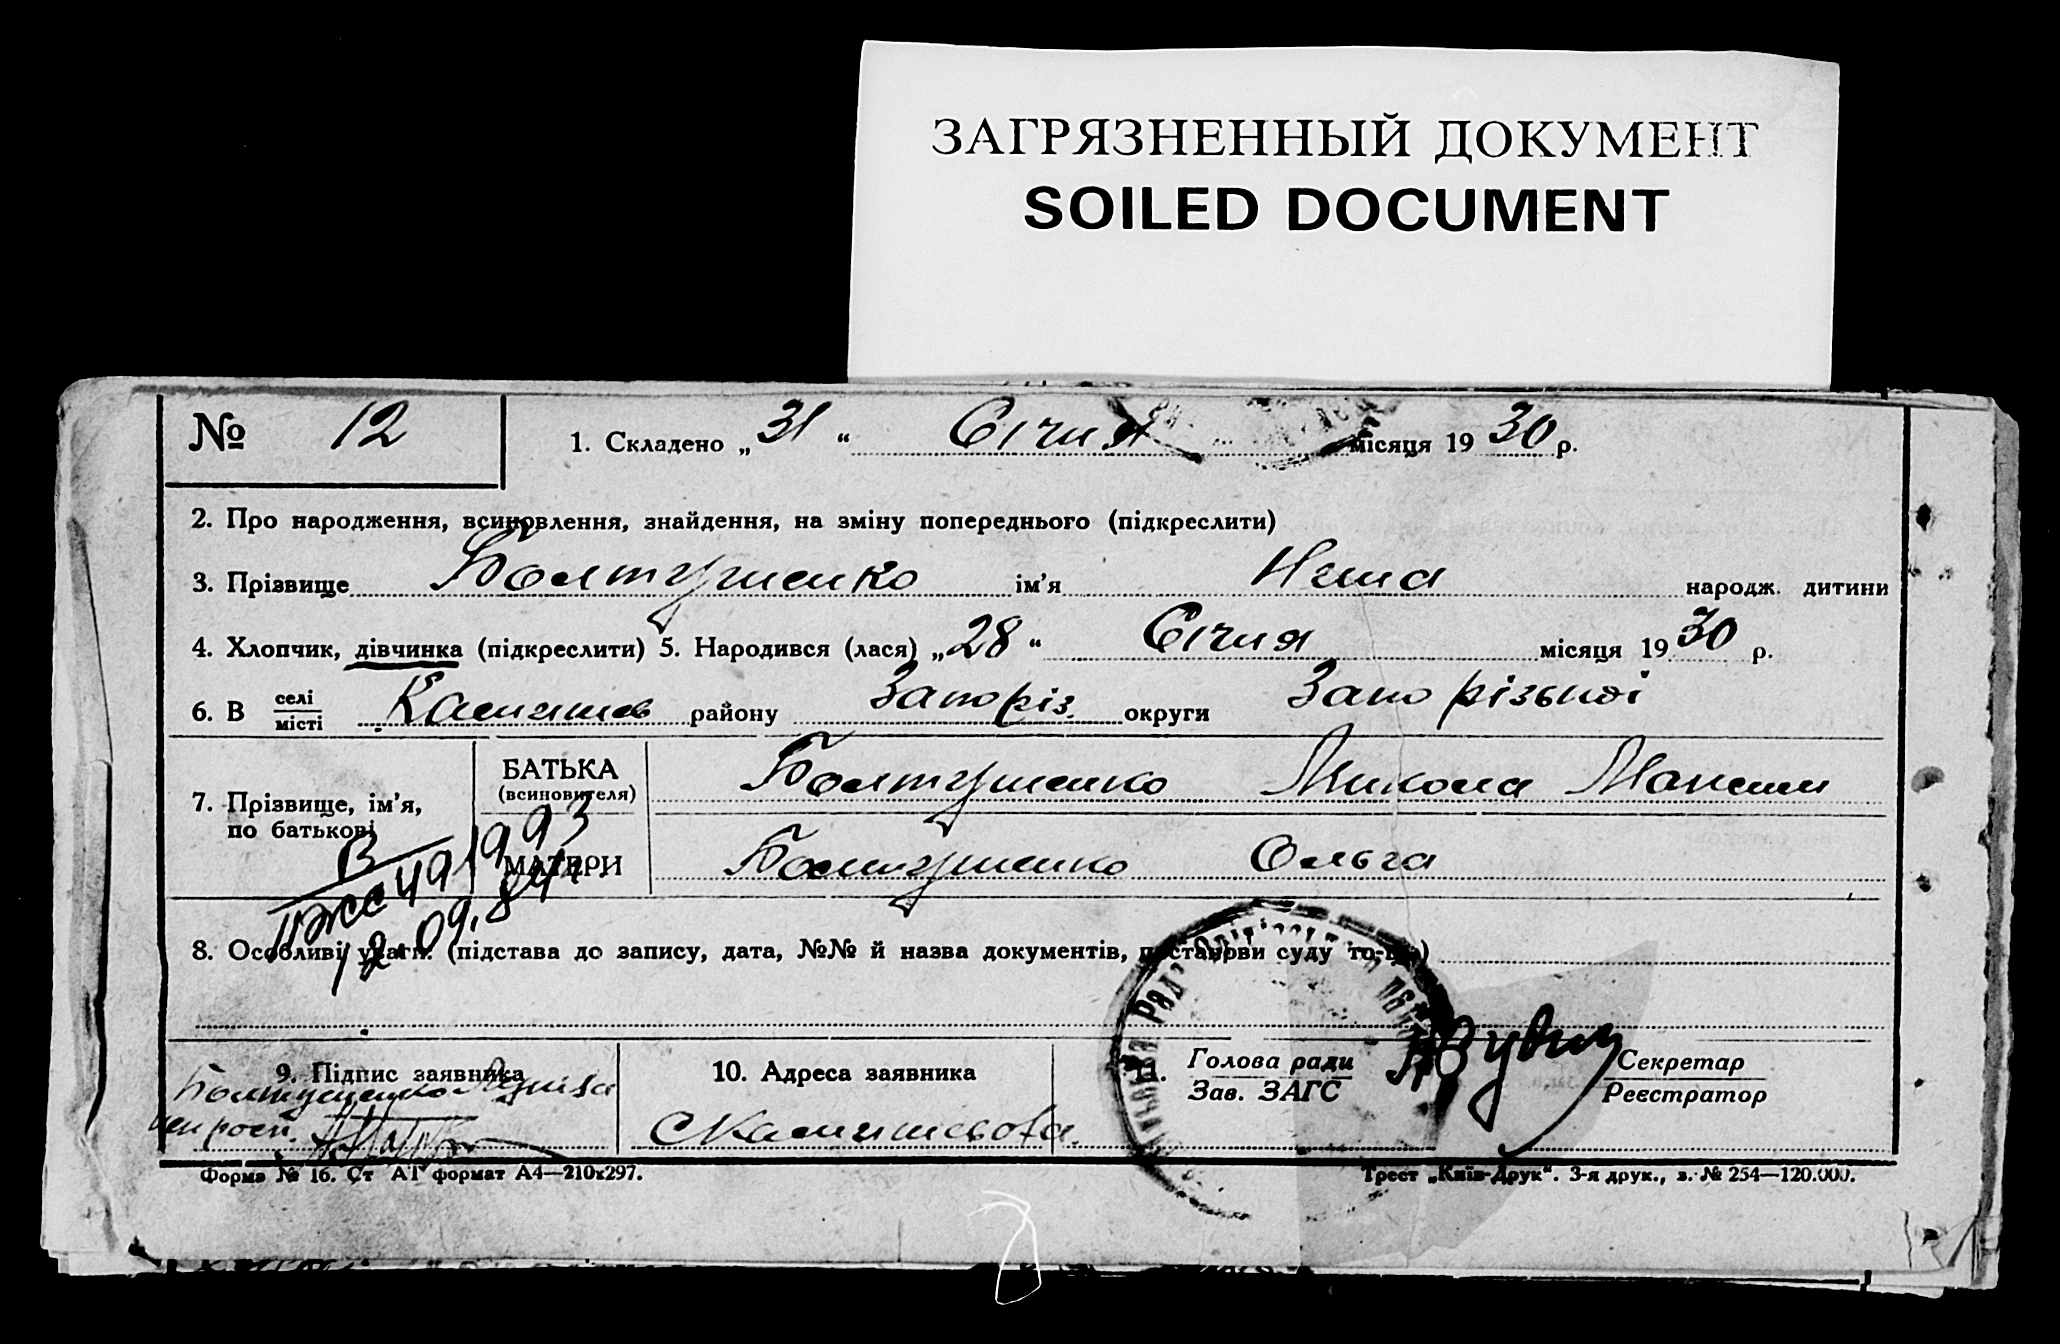 ЗАГРЯЗНЕННЫЙ ДОКУМЕНТ
SOILED DOCUMENT
№ 12
1. Складено „31“ Січня місяця 1930 р.
2. Про народження, всиновлення, знайдення, на зміну попереднього (підкреслити)
3. Прізвище Болтушенко ім’я Нина народж. дитини
4. Хлопчик, дівчинка (підкреслити) 5. Народився (лася) „28“ Січня місяця 1930 р.
6. В селі місті району Запоріз. округи Запорізької
7. Прізвище, ім’я, по батькові
БАТЬКА (всиновителя) Болтушенко Микола Максим
МАТЕРИ Болтушенко Ольга
8. Особливі уваги: (підстава до запису, дата, №№ й назва документів, постанови суду то-що)
12.09.84
9. Підпис заявника
Болтушенко
10. Адреса заявника
11. Голова ради
Зав. ЗАГС
Секретар
Реєстратор
Форма № 16. Ст А1 формат А4—210х297.
Трест „Київ-Друк“. 3-я друк., з. № 254—120.000.